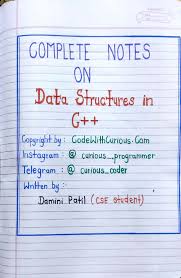 COMPLETE NOTES
ON
Data Structures in
C++
Copyright by : CodeWithCurious.Com
Instagram : @ curious_programmer
Telegram : @ curious_coder
Written by :-
Damini Patil (CSE Student)